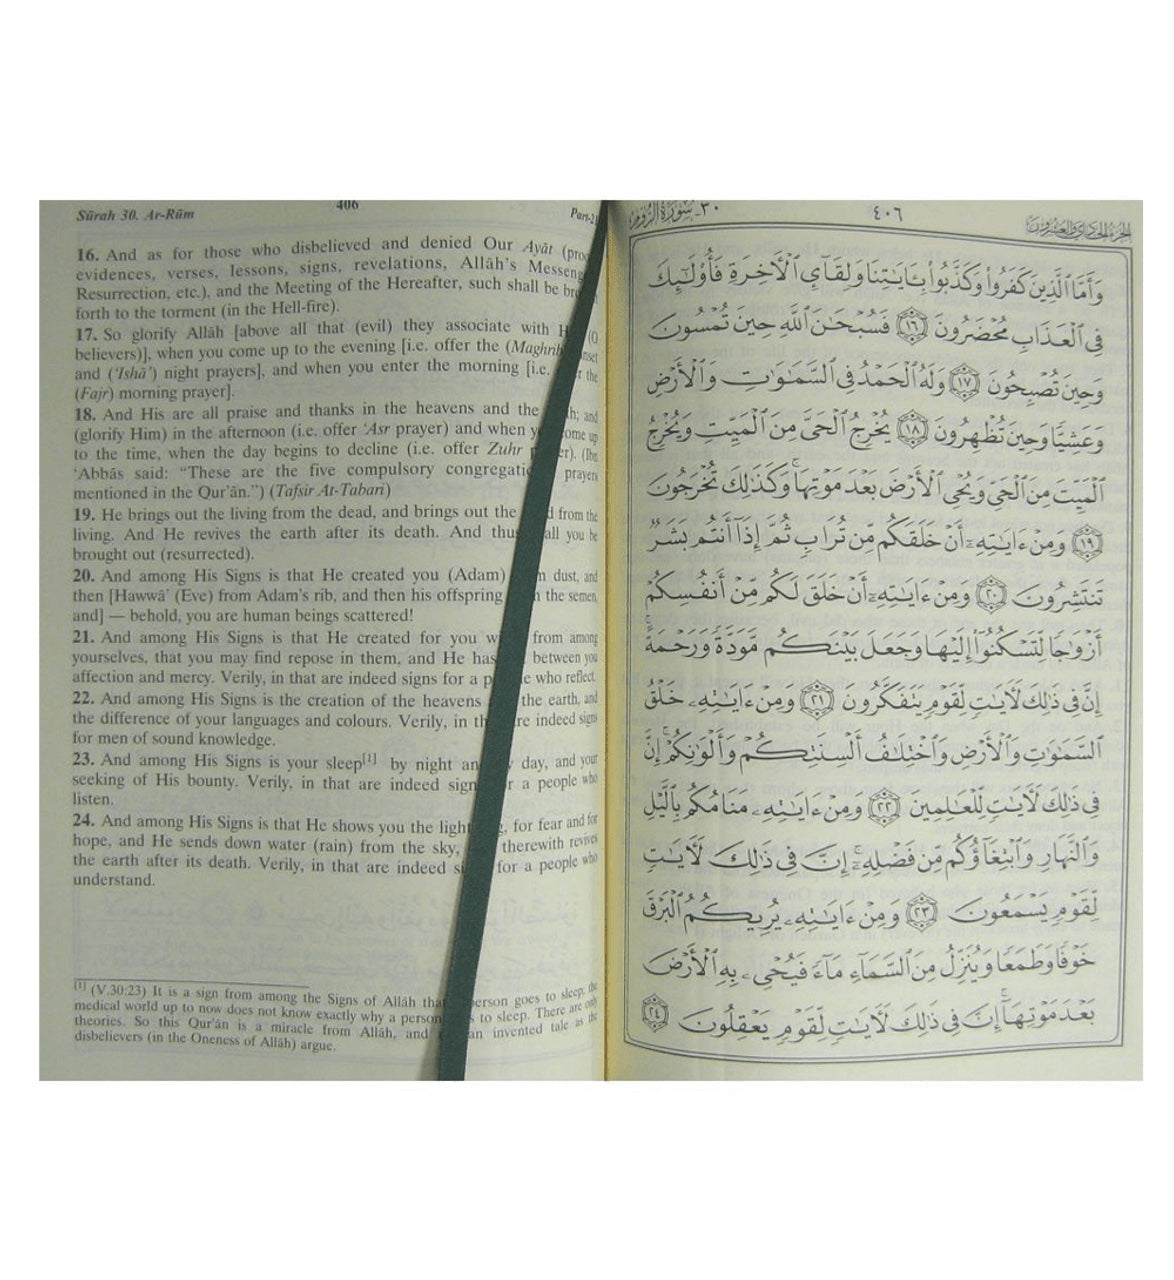 Sūrah 30. Ar-Rūm
406
Part-21
16. And as for those who disbelieved and denied Our Ayāt (
evidences, verses, lessons, signs, revelations, Allāh's
Resurrection, etc.), and the Meeting of the Hereafter, such shall be
forth to the torment (in the Hell-fire).
17. So glorify Allāh [above all that (evil) they associate with (O
believers)], when you come up to the evening [i.e. offer the (Maghrib)
and ('Ishā') night prayers], and when you enter the morning [i.e. the
(Fajr) morning prayer].
18. And His are all praise and thanks in the heavens and the and
(glorify Him) in the afternoon (i.e. offer 'Asr prayer) and when come up
to the time, when the day begins to decline (i.e. offer Zuhr (Ibn
'Abbās said: "These are the five compulsory prayers
mentioned in the Qur'ān.") (Tafsir At-Tabari)
19. He brings out the living from the dead, and brings out the from the
living. And He revives the earth after its death. And thus you be
brought out (resurrected).
20. And among His Signs is that He created you (Adam) dust, and
then [Hawwā' (Eve) from Adam's rib, and then his offspring the semen,
and] — behold, you are human beings scattered!
21. And among His Signs is that He created for you from among
yourselves, that you may find repose in them, and He has between you
affection and mercy. Verily, in that are indeed signs for a who reflect.
22. And among His Signs is the creation of the heavens the earth, and
the difference of your languages and colours. Verily, in indeed signs
for men of sound knowledge.
23. And among His Signs is your sleep[1] by night day, and your
seeking of His bounty. Verily, in that are indeed a people who
listen.
24. And among His Signs is that He shows you the for fear and for
hope, and He sends down water (rain) from the sky, therewith revives
the earth after its death. Verily, in that are indeed for a people who
understand.
[1] (V.30:23) It is a sign from among the Signs of Allāh goes to sleep; the
medical world up to now does not know exactly why a person to sleep. There are only
theories. So this Qur'ān is a miracle from Allāh, and an invented tale as the
disbelievers (in the Oneness of Allāh) argue.
٣٠ - سورة الروم
٤٠٦
الجزء الحادي والعشرون
وَأَمَّا ٱلَّذِينَ كَفَرُوا۟ وَكَذَّبُوا۟ بِـَٔايَـٰتِنَا وَلِقَآئِ ٱلْـَٔاخِرَةِ فَأُو۟لَـٰٓئِكَ
فِى ٱلْعَذَابِ مُحْضَرُونَ ١٦ فَسُبْحَـٰنَ ٱللَّهِ حِينَ تُمْسُونَ
وَحِينَ تُصْبِحُونَ ١٧ وَلَهُ ٱلْحَمْدُ فِى ٱلسَّمَـٰوَٰتِ وَٱلْأَرْضِ
وَعَشِيًّا وَحِينَ تُظْهِرُونَ ١٨ يُخْرِجُ ٱلْحَىَّ مِنَ ٱلْمَيِّتِ وَيُخْرِجُ
ٱلْمَيِّتَ مِنَ ٱلْحَىِّ وَيُحْىِ ٱلْأَرْضَ بَعْدَ مَوْتِهَا ۚ وَكَذَٰلِكَ تُخْرَجُونَ
١٩ وَمِنْ ءَايَـٰتِهِۦٓ أَنْ خَلَقَكُم مِّن تُرَابٍ ثُمَّ إِذَآ أَنتُم بَشَرٌ
تَنتَشِرُونَ ٢٠ وَمِنْ ءَايَـٰتِهِۦٓ أَنْ خَلَقَ لَكُم مِّنْ أَنفُسِكُمْ
أَزْوَٰجًا لِّتَسْكُنُوٓا۟ إِلَيْهَا وَجَعَلَ بَيْنَكُم مَّوَدَّةً وَرَحْمَةً ۚ
إِنَّ فِى ذَٰلِكَ لَـَٔايَـٰتٍ لِّقَوْمٍ يَتَفَكَّرُونَ ٢١ وَمِنْ ءَايَـٰتِهِۦ خَلْقُ
ٱلسَّمَـٰوَٰتِ وَٱلْأَرْضِ وَٱخْتِلَـٰفُ أَلْسِنَتِكُمْ وَأَلْوَٰنِكُمْ ۚ إِنَّ
فِى ذَٰلِكَ لَـَٔايَـٰتٍ لِّلْعَـٰلِمِينَ ٢٢ وَمِنْ ءَايَـٰتِهِۦ مَنَامُكُم بِٱلَّيْلِ
وَٱلنَّهَارِ وَٱبْتِغَآؤُكُم مِّن فَضْلِهِۦٓ ۚ إِنَّ فِى ذَٰلِكَ لَـَٔايَـٰتٍ
لِّقَوْمٍ يَسْمَعُونَ ٢٣ وَمِنْ ءَايَـٰتِهِۦ يُرِيكُمُ ٱلْبَرْقَ
خَوْفًا وَطَمَعًا وَيُنَزِّلُ مِنَ ٱلسَّمَآءِ مَآءً فَيُحْىِۦ بِهِ ٱلْأَرْضَ
بَعْدَ مَوْتِهَآ ۚ إِنَّ فِى ذَٰلِكَ لَـَٔايَـٰتٍ لِّقَوْمٍ يَعْقِلُونَ ٢٤